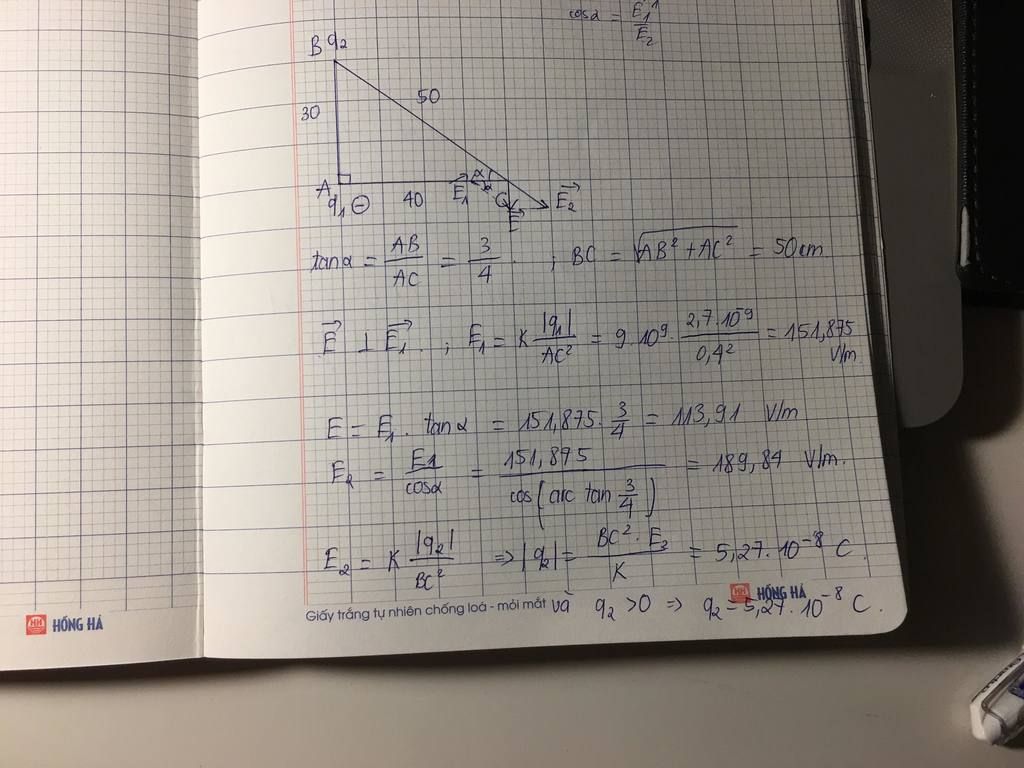 cosα = E₁/E₂
B q₂
30
50
A q₁ ⊖ 40 E₁⃗ α E⃗ E₂⃗
tanα = AB/AC = 3/4 . ; BC = √(AB² + AC²) = 50cm
E⃗ ⊥ E₁⃗ . ; E₁ = K |q₁|/AC² = 9.10⁹. 2,7.10⁻⁹/0,4² = 151,875 V/m
E = E₁ . tanα = 151,875. 3/4 = 113,91 V/m
E₂ = E1/cosα = 151,875/cos(arc tan 3/4) = 189,84 V/m.
E₂ = K |q₂|/BC² => |q₂| = BC². E₂/K = 5,27.10⁻⁸ C.
và q₂ >0 => q₂ = 5,27.10⁻⁸ C.
Giấy trắng tự nhiên chống loá - mỏi mắt
HH HỒNG HÀ
HH HỒNG HÀ